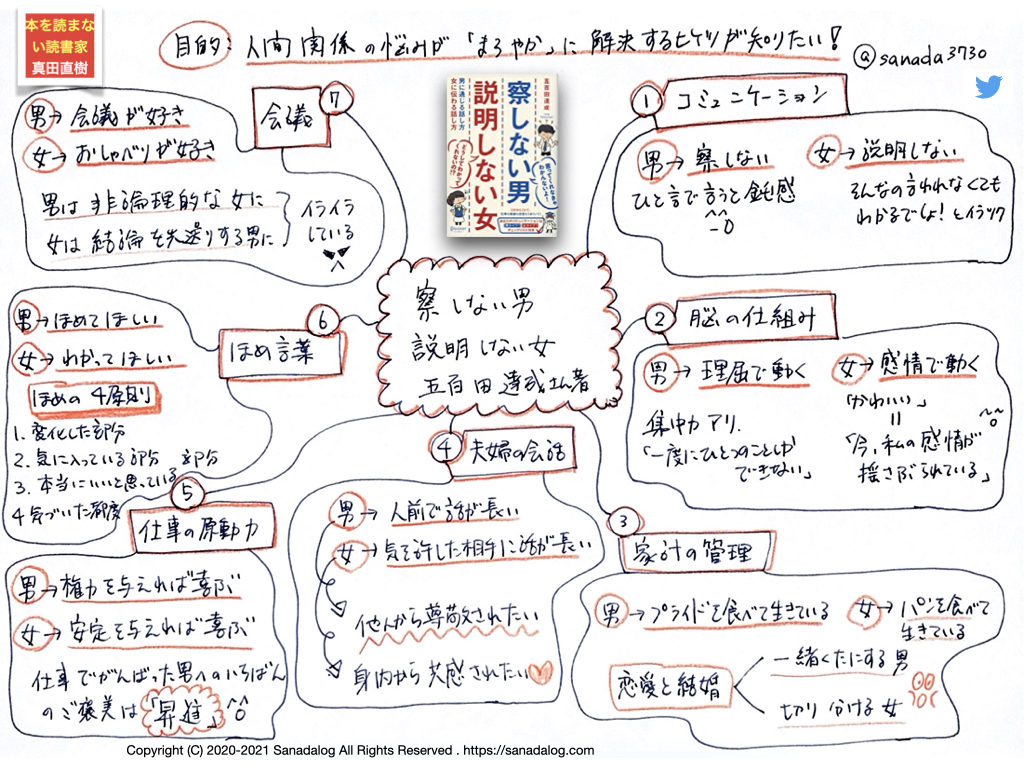 本を読まな
い読書家
真田直樹
目的：人間関係の悩みが「まろやか」に解決するヒケツが知りたい！
@sanada3730
五百田達成
察しない男
説明しない女
男に通じる話し方
女に伝わる話し方
① コミュニケーション
男→察しない
ひと言で言うと鈍感
女→説明しない
そんなの言われなくても
わかるでしょ！とイラッ
② 脳の仕組み
男→理屈で動く
集中力アリ．
「一度にひとつのことしか
できない」
女→感情で動く
「かわいい」
=
「今、私の感情が
揺さぶられている」
③ 家計の管理
男→プライドを食べて生きている
女→パンを食べて
生きている
恋愛と結婚
一緒くたにする男
切り分ける女
④ 夫婦の会話
男→人前で話が長い
女→気を許した相手に話が長い
他人から尊敬されたい
身内から共感されたい
⑤ 仕事の原動力
男→権力を与えれば喜ぶ
女→安定を与えれば喜ぶ
仕事でがんばった男へのいちばん
のご褒美は「昇進」
⑥ ほめ言葉
男→ほめてほしい
女→わかってほしい
ほめの4原則
1. 変化した部分
2. 気に入っている部分
3. 本当にいいと思っている部分
4 気づいた都度
⑦ 会議
男→会議が好き
女→おしゃべりが好き
男は非論理的な女に
女は結論を先送りする男に
イライラ
している
察しない男
説明しない女
五百田達成さん著
Copyright (C) 2020-2021 Sanadalog All Rights Reserved . https://sanadalog.com